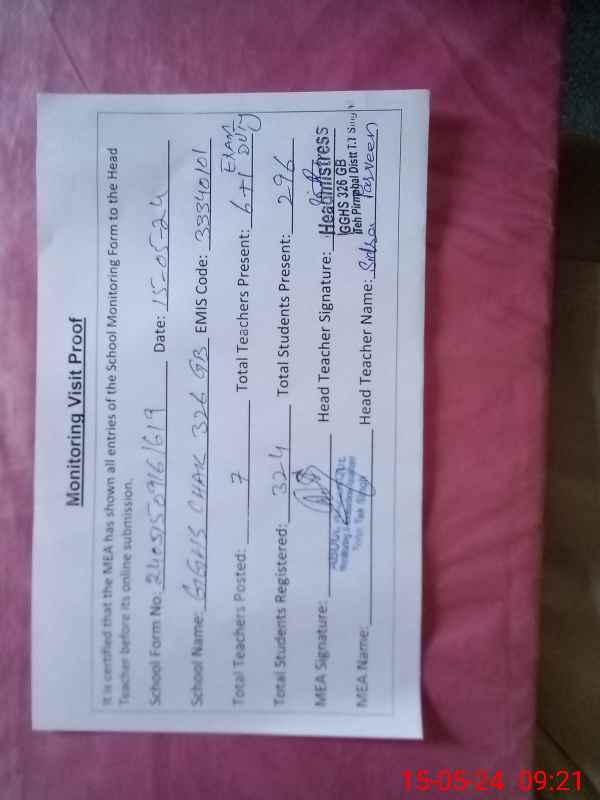 Monitoring Visit Proof
It is certified that the MEA has shown all entries of the School Monitoring Form to the Head
Teacher before its online submission.
School Form No: 24051509161619 Date: 15-05-24
School Name: GGHS CHAK 326 GB EMIS Code: 33340101
Total Teachers Posted: 7 Total Teachers Present: 6+1 EXAM DUTY
Total Students Registered: 324 Total Students Present: 296
MEA Signature: ABDUL Head Teacher Signature: Headmistress
GGHS 326 GB
Teh Pirmahal Distt T.T Singh
MEA Name: Head Teacher Name: Parveen
15-05-24 09:21